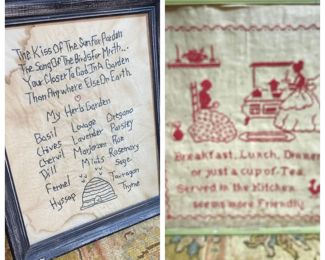 The Kiss Of The Sun For Pardon
The Song Of The Birds For Mirth...
Your Closer To God In A Garden
Than Anywhere Else On Earth.
My Herb Garden
Basil Lovage Oregano
Chives Lavender Parsley
Chervil Marjoram Rue
Dill Mints Rosemary
Fennel Sage
Hyssop Tarragon
Thyme
Breakfast, Lunch, Dinner
or just a cup of Tea
Served in the Kitchen
seems more Friendly